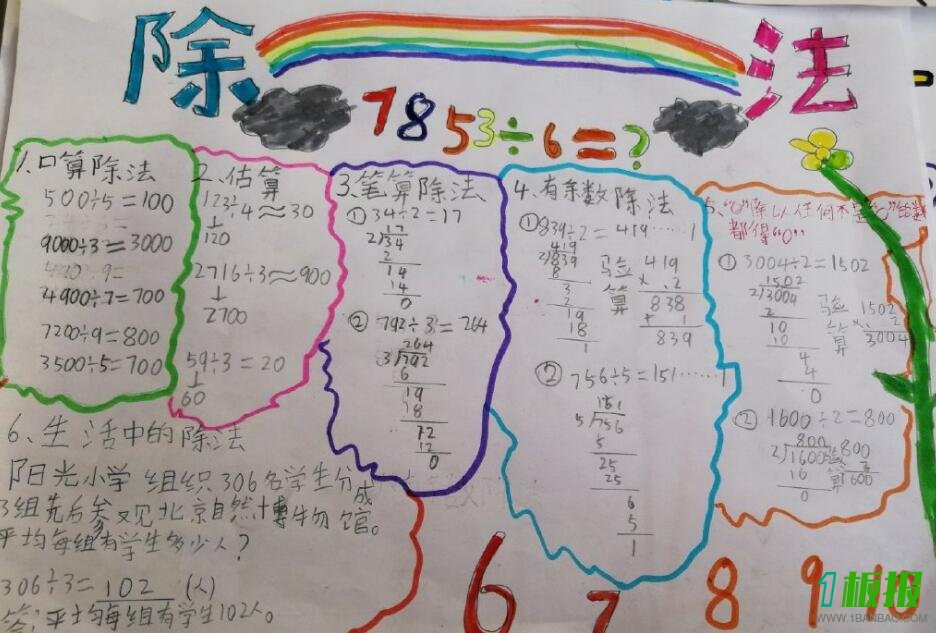 除法
7853÷6=?
1、口算除法
500÷5=100
9000÷3=3000
4900÷7=700
7200÷9=800
3500÷5=700
2、估算
123÷4≈30
↓
120
2716÷3≈900
↓
2700
59÷3=20
↓
60
3、笔算除法
①34÷2=17
17
2/34
2
14
14
0
②792÷3=264
264
3/792
6
19
18
72
12
0
4、有余数除法
①839÷2=419……1
419
2/839
8
3
2
19
18
1
验算
419
×2
838
+1
839
②756÷5=151……1
151
5/756
5
25
25
6
5
1
5、"0"除以任何不是"0"的数
都得"0"
①3004÷2=1502
1502
2/3004
2
10
10
4
4
0
验算
1502
×2
3004
②1600÷2=800
800
2/1600
16
0
验算
800
6、生活中的除法
阳光小学组织306名学生分成
3组先后参观北京自然博物馆。
平均每组有学生多少人?
306÷3=102(人)
答:平均每组有学生102人。
6 7 8 9 10
1板报
WWW.1BANBAO.COM